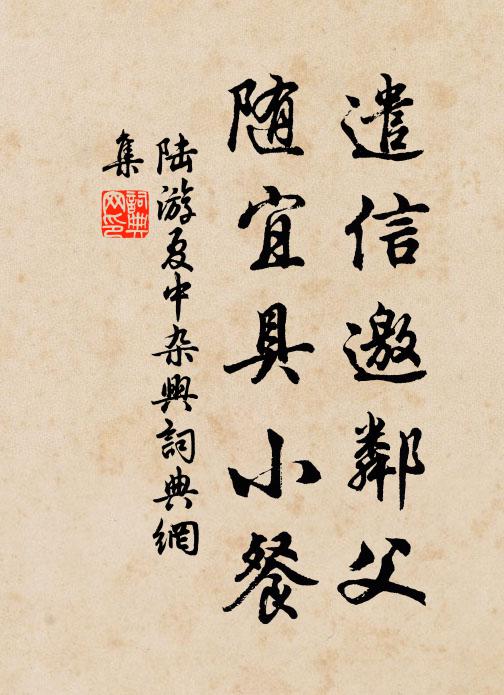 遣信邀鄰父
随宜具小餐
陆游夏中杂興詞典網
集
詞典
网印